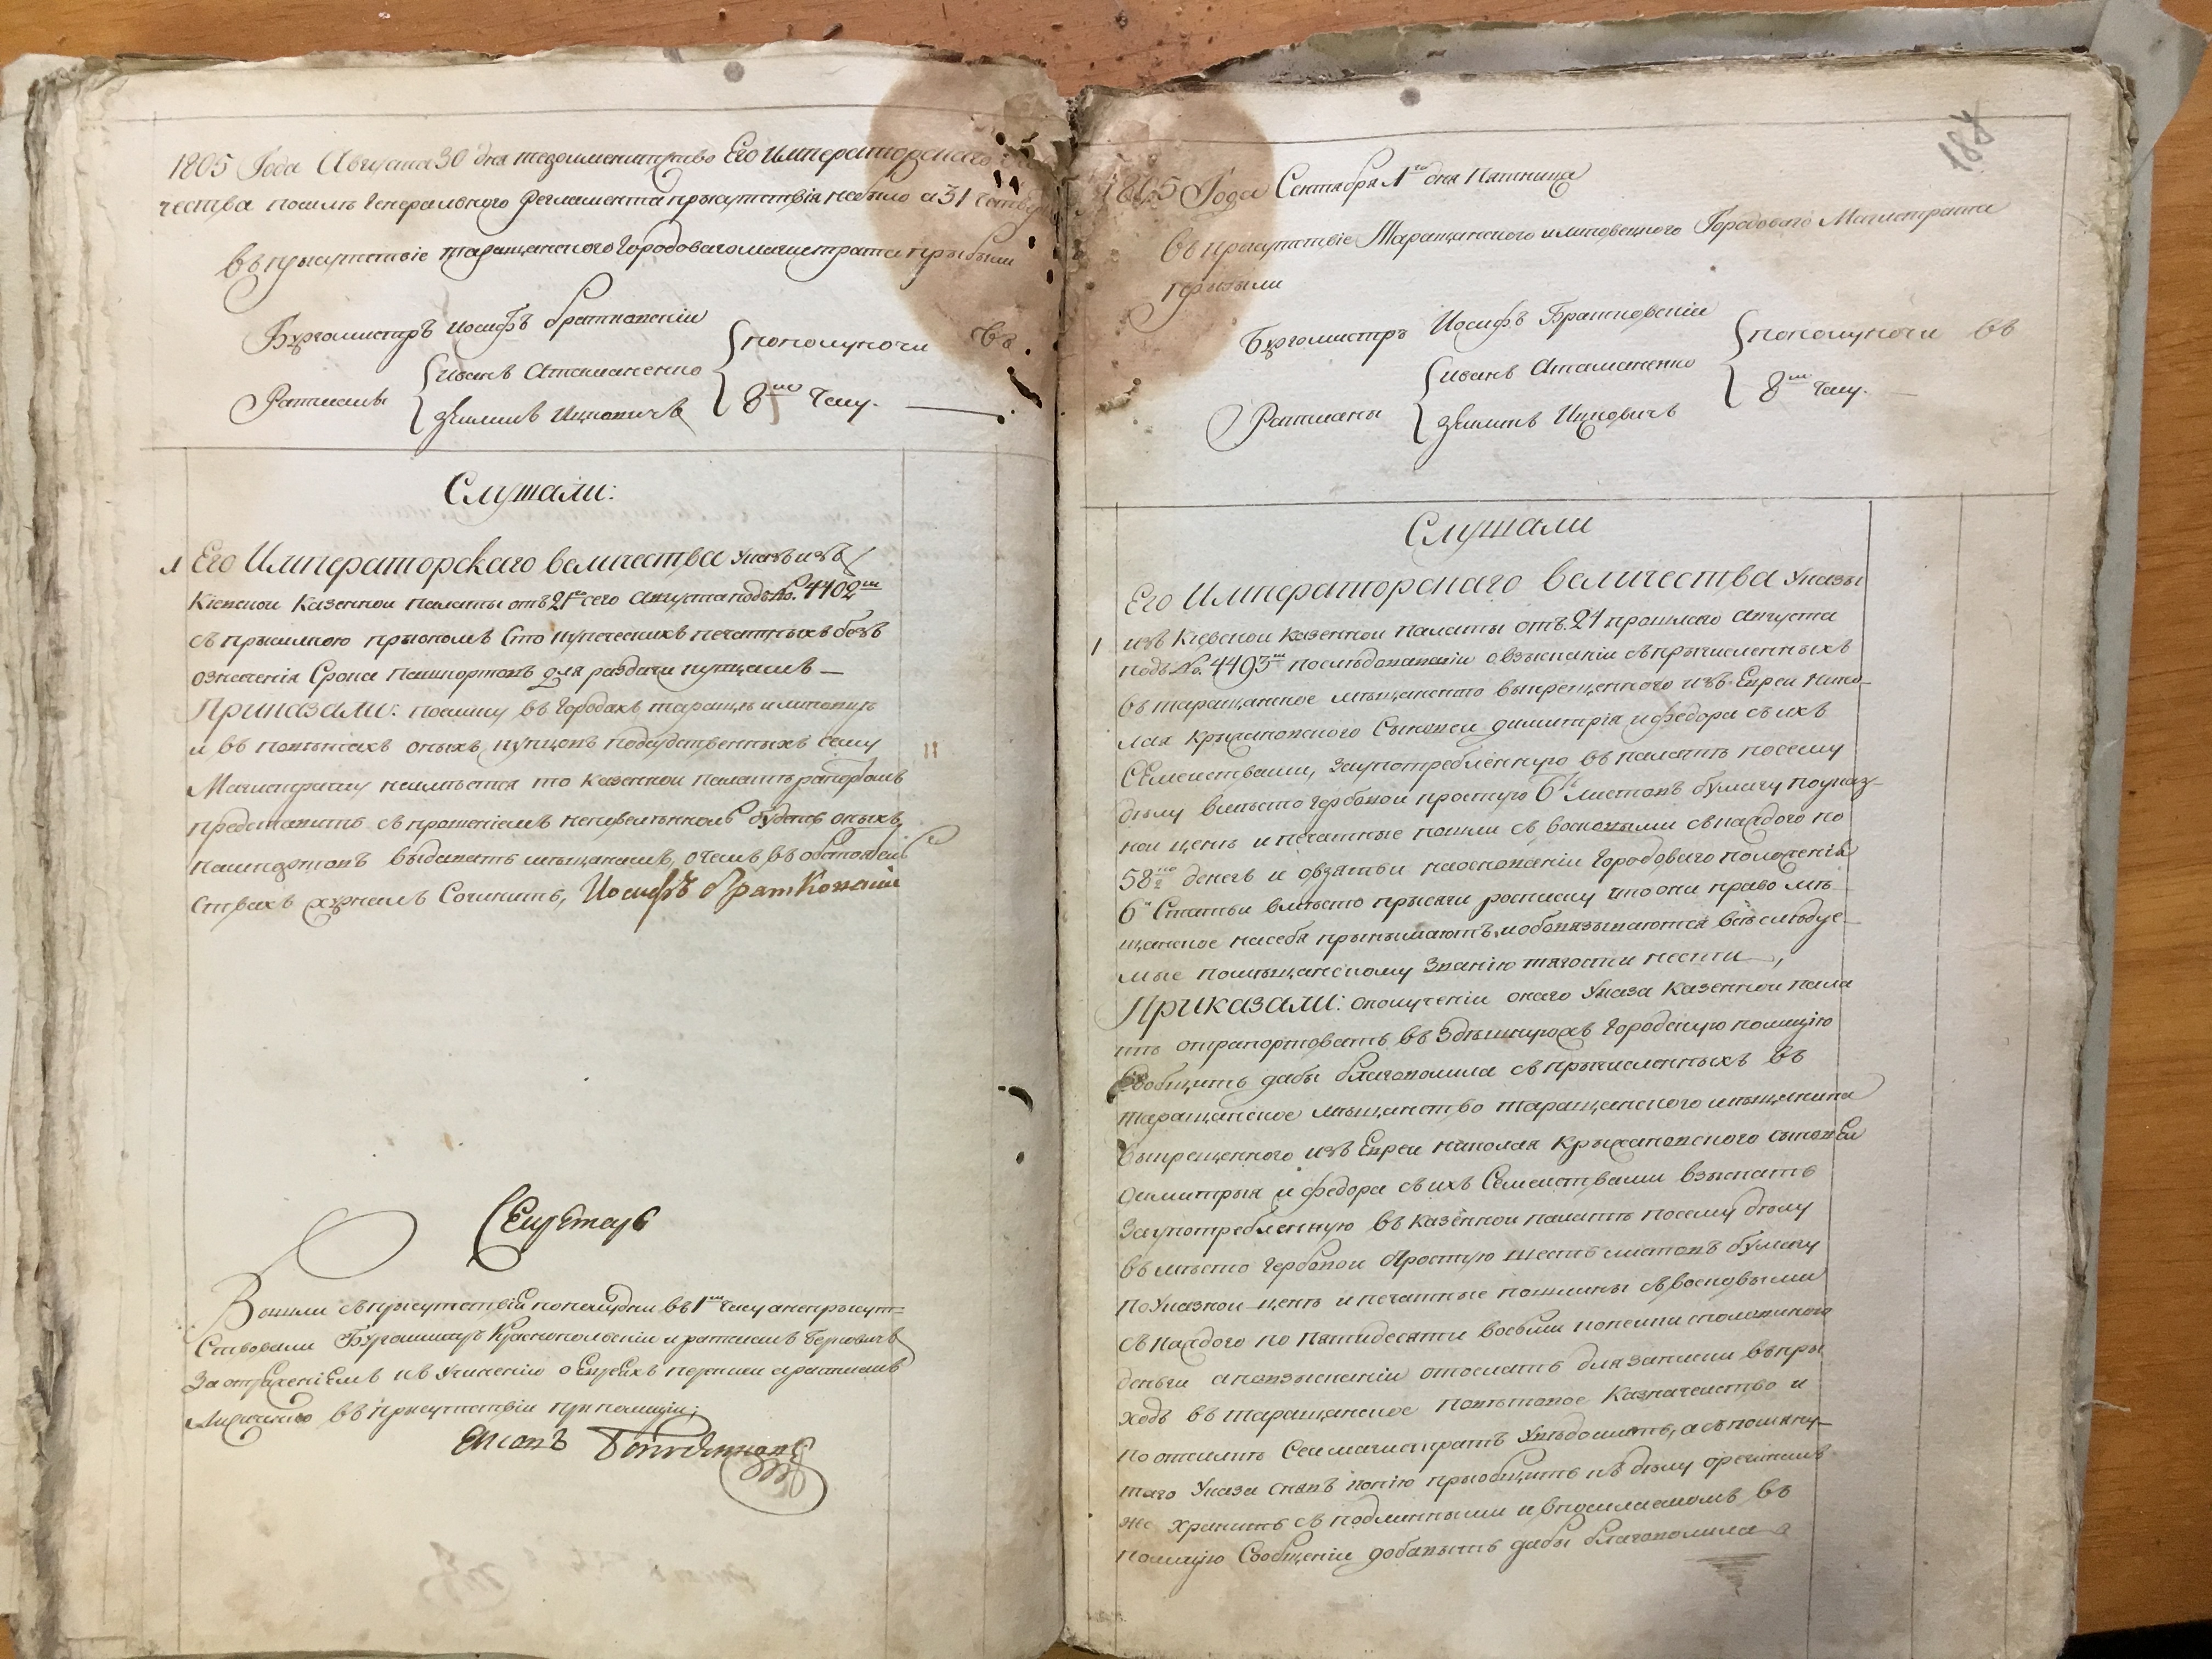 1805 Года Августа 30 дня тезоименитство Его Императорскаго
чества посилѣ Генерального регламента прысутствія небыло а 31
въ прысутствіе таращанского Городоваго магистрата прыбыли
Бургомистръ Иосифъ Братковскіи
пополуночи въ
Иванъ Атаманенко
Ратманы
8мъ часу.
Зѣлманъ Ицковичъ
Слушали:
1 Его Императорскаго величества Указъ изъ
Кіевскои казеннои палаты отъ 21го сего Августа подъ №. 4402мъ
съ прысилкою прыономъ Сто купеческихъ печатныхъ безъ
означенія Срока пашпортовъ для раздачи купцамъ —
Приказали: поелику въ городахъ таращѣ и липовцѣ
и въ повѣтахъ оныхъ купцовъ подсудственныхъ сему
Магистрату неимѣется то казеннои палатѣ рапортомъ
представить съ прошеніемъ неповелѣнноль будетъ оныхъ
пашпортовъ выдавать мѣщанамъ, о чемъ въ обстоятель
ствахъ журналъ Сочинить, Иосифъ Братковскіи
Вышли съ прысутствія пополудни въ 1мъ часу а неприсут=
Ствовали Бургомистръ Краснопольскіи и ратманъ Берковичъ
За отряженіемъ къ Учиненію о Евреяхъ переписи а ратманъ
въ прысутствіи при полиціи;
187
1805 Года Сентября 1го дня Пятница
въ прысутствіе Таращанского и липовецкого Городоваго Магистрата
прыбыли
Бургомистръ Иосифъ Братковскіи
пополуночи въ
Иванъ Атаманенко
Ратманы
8мъ часу.
Зѣлманъ Ицковичъ
Слушали
Его Императорскаго величества Указы
1 изъ Кіевскои казеннои палаты отъ. 21 прошлаго Августа
подъ №. 4403мъ послѣдованіи о взысканіи съ прычисленныхъ
въ таращанское мѣщанство выкрещенного изъ Евреи Нико-
лая Крыжановского Сыновеи димитрія и федора съ ихъ
Семействами, Заупотребленную въ палатѣ посему
дѣлу вмѣсто гербовои простую 6ть листовъ бумагу по указ-
нои ценѣ и печатные пошли съ восковыми съ каждого по
58 1/2 денегъ и овзятьи наоснованіи Городового положенія
6й Статьи вмѣсто прысяги росписку что они право мѣ-
щанское насебя прынымаютъ, и обовязываются всѣ слѣдуе-
мые помѣщанскому Званію тягости нести,
Приказали: ополученіи онаго Указа Казеннои пала
тѣ отрапортовать въ Здѣшнуюжъ Городскую полицію
Сообщить дабы благоволила съ прычисленныхъ въ
таращанское мѣщанство таращанского мѣщанина
выкрещенного изъ Евреи николая Крыжановского сыновеи
димитрыя и федора съ ихъ Семействами взыскать
Заупотребленную въ казеннои палатѣ посему дѣлу
въ мѣсто гербовои Простую шесть листовъ бумагу
по Указнои ценѣ и печатные пошлины съ восковыми
съ каждого по пятидесяти восьми копеики споловиною
деньги а по взысканіи отослать для записки въ пры
ходъ въ таращанское повѣтовое Казначейство и
по отсылкѣ Сей магистратъ Увѣдомить, а съ помяну-
таго Указа снявъ копію прыобщить къ дѣлу орегиналъ
же хранить съ подлинными и впосилаемомъ въ
полицію Сообщеніи добавыть дабы благоволила